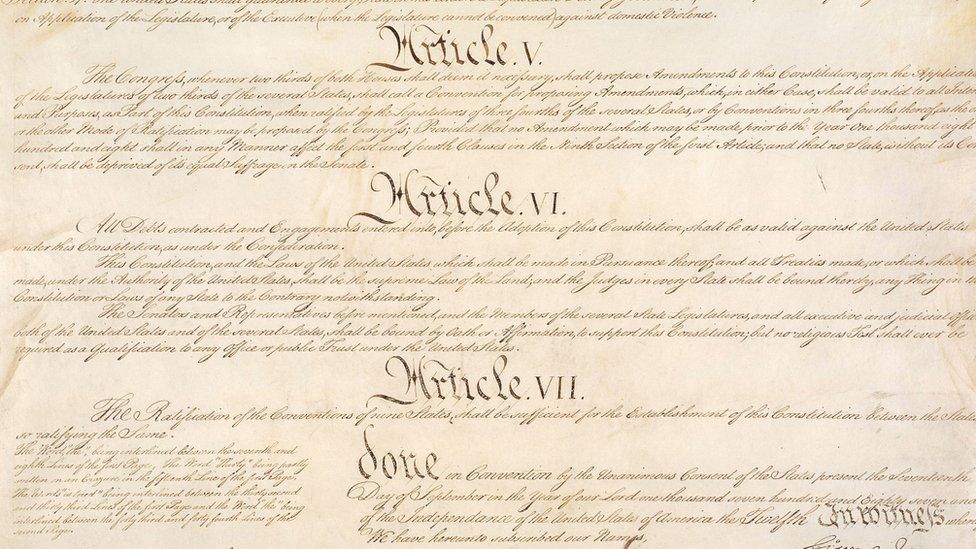 on Application of the Legislature, or of the Executive (when the Legislature cannot be convened) against domestic Violence.
Article. V.
The Congress, whenever two thirds of both Houses shall deem it necessary, shall propose Amendments to this Constitution, or, on the Applica
of the Legislatures of two thirds of the several States, shall call a Convention for proposing Amendments, which, in either Case, shall be valid to all Inten
and Purposes, as Part of this Constitution, when ratified by the Legislatures of three fourths of the several States, or by Conventions in three fourths thereof, as the
or the other Mode of Ratification may be proposed by the Congress; Provided that no Amendment which may be made prior to the Year One thousand eight
hundred and eight shall in any Manner affect the first and fourth Clauses in the Ninth Section of the first Article; and that no State, without its Con
sent, shall be deprived of its equal Suffrage in the Senate.
Article. VI.
All Debts contracted and Engagements entered into, before the Adoption of this Constitution, shall be as valid against the United States
under this Constitution, as under the Confederation.
This Constitution, and the Laws of the United States which shall be made in Pursuance thereof; and all Treaties made, or which shall be
made, under the Authority of the United States, shall be the supreme Law of the Land; and the Judges in every State shall be bound thereby, any Thing in
Constitution or Laws of any State to the Contrary notwithstanding.
The Senators and Representatives before mentioned, and the Members of the several State Legislatures, and all executive and judicial offi
both of the United States and of the several States, shall be bound by Oath or Affirmation, to support this Constitution; but no religious Test shall ever be
required as a Qualification to any Office or public Trust under the United States.
Article. VII.
The Ratification of the Conventions of nine States, shall be sufficient for the Establishment of this Constitution between the State
so ratifying the Same.
The Word, "the," being interlined between the seventh and
eighth Lines of the first Page, The Word "Thirty" being partly
written on an Erazure in the fifteenth Line of the first Page,
The Words "is tried" being interlined between the thirty second
and thirty third Lines of the first Page and the Word "the" being
interlined between the forty third and forty fourth Lines of the
second Page.
done in Convention by the Unanimous Consent of the States present the Seventeenth
Day of September in the Year of our Lord one thousand seven hundred and Eighty seven and
of the Independance of the United States of America the Twelfth In witness where
We have hereunto subscribed our Names,